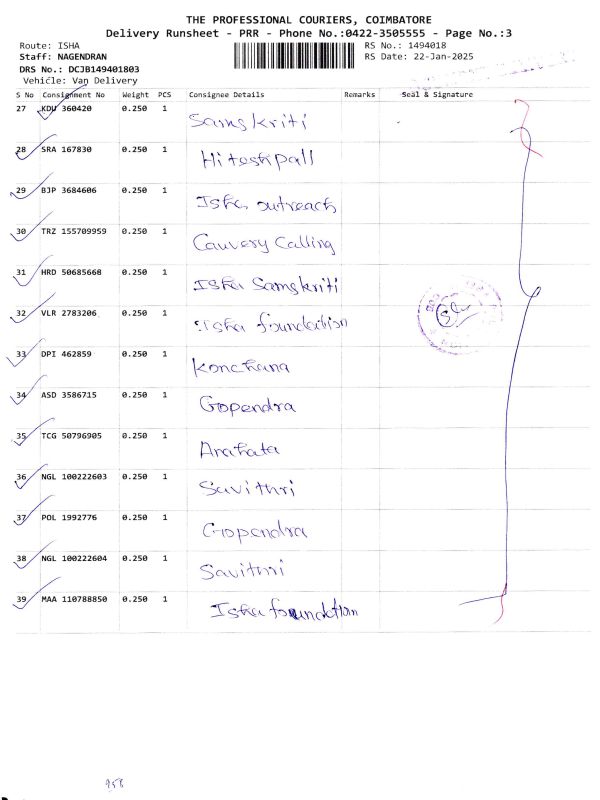 THE PROFESSIONAL COURIERS, COIMBATORE
Delivery Runsheet - PRR - Phone No.:0422-3505555 - Page No.:3
Route: ISHA RS No.: 1494018
Staff: NAGENDRAN RS Date: 22-Jan-2025
DRS No.: DCJB149401803
Vehicle: Van Delivery
S No Consignment No Weight PCS Consignee Details Remarks Seal & Signature
27 KDU 360420 0.250 1 Samskriti
28 SRA 167830 0.250 1 Hiteshpall
29 BJP 3684606 0.250 1 Isha outreach
30 TRZ 155709959 0.250 1 Cauvery Calling
31 HRD 50685668 0.250 1 Isha Samskriti
32 VLR 2783206 0.250 1 Isha foundation
33 DPI 462859 0.250 1 Konchana
34 ASD 3586715 0.250 1 Gopendra
35 TCG 50796905 0.250 1 Arahata
36 NGL 100222603 0.250 1 Savithri
37 POL 1992776 0.250 1 Gopendra
38 NGL 100222604 0.250 1 Savithri
39 MAA 110788850 0.250 1 Isha foundation
958